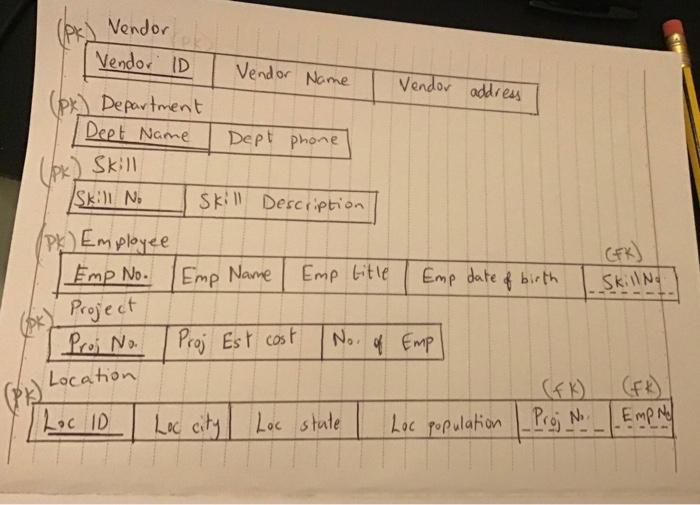 (PK) Vendor
Vendor ID Vendor Name Vendor address
(PK) Department
Dept Name Dept phone
(PK) Skill
Skill No Skill Description
(PK) Employee (FK)
Emp No. Emp Name Emp title Emp date of birth Skill No
(PK) Project
Proj No. Proj Est cost No. of Emp
(PK) Location (FK) (FK)
Loc ID Loc city Loc state Loc population Proj No. Emp No